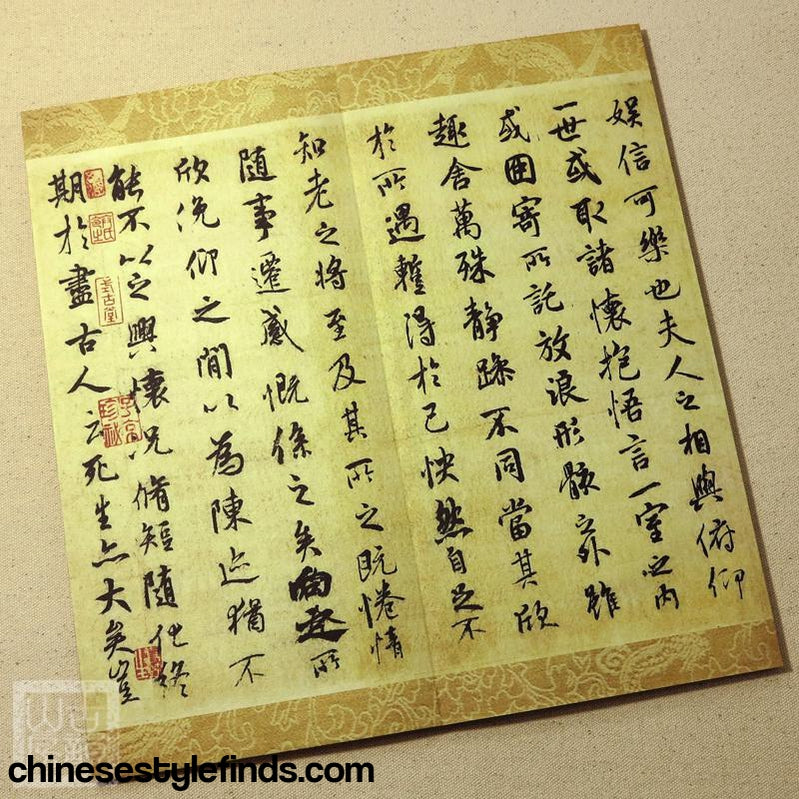 娱信可樂也夫人之相與俯仰
一世或取諸懷抱悟言一室之內
或因寄所託放浪形骸之外雖
趣舍萬殊静躁不同當其欣
於所遇蹔得於己怏然自足不
知老之將至及其所之既惓情
隨事遷感慨係之矣向之所
欣俛仰之閒以為陳迹猶不
能不以之興懷況脩短隨化終
期於盡古人云死生亦大矣豈
chinesestylefinds.com